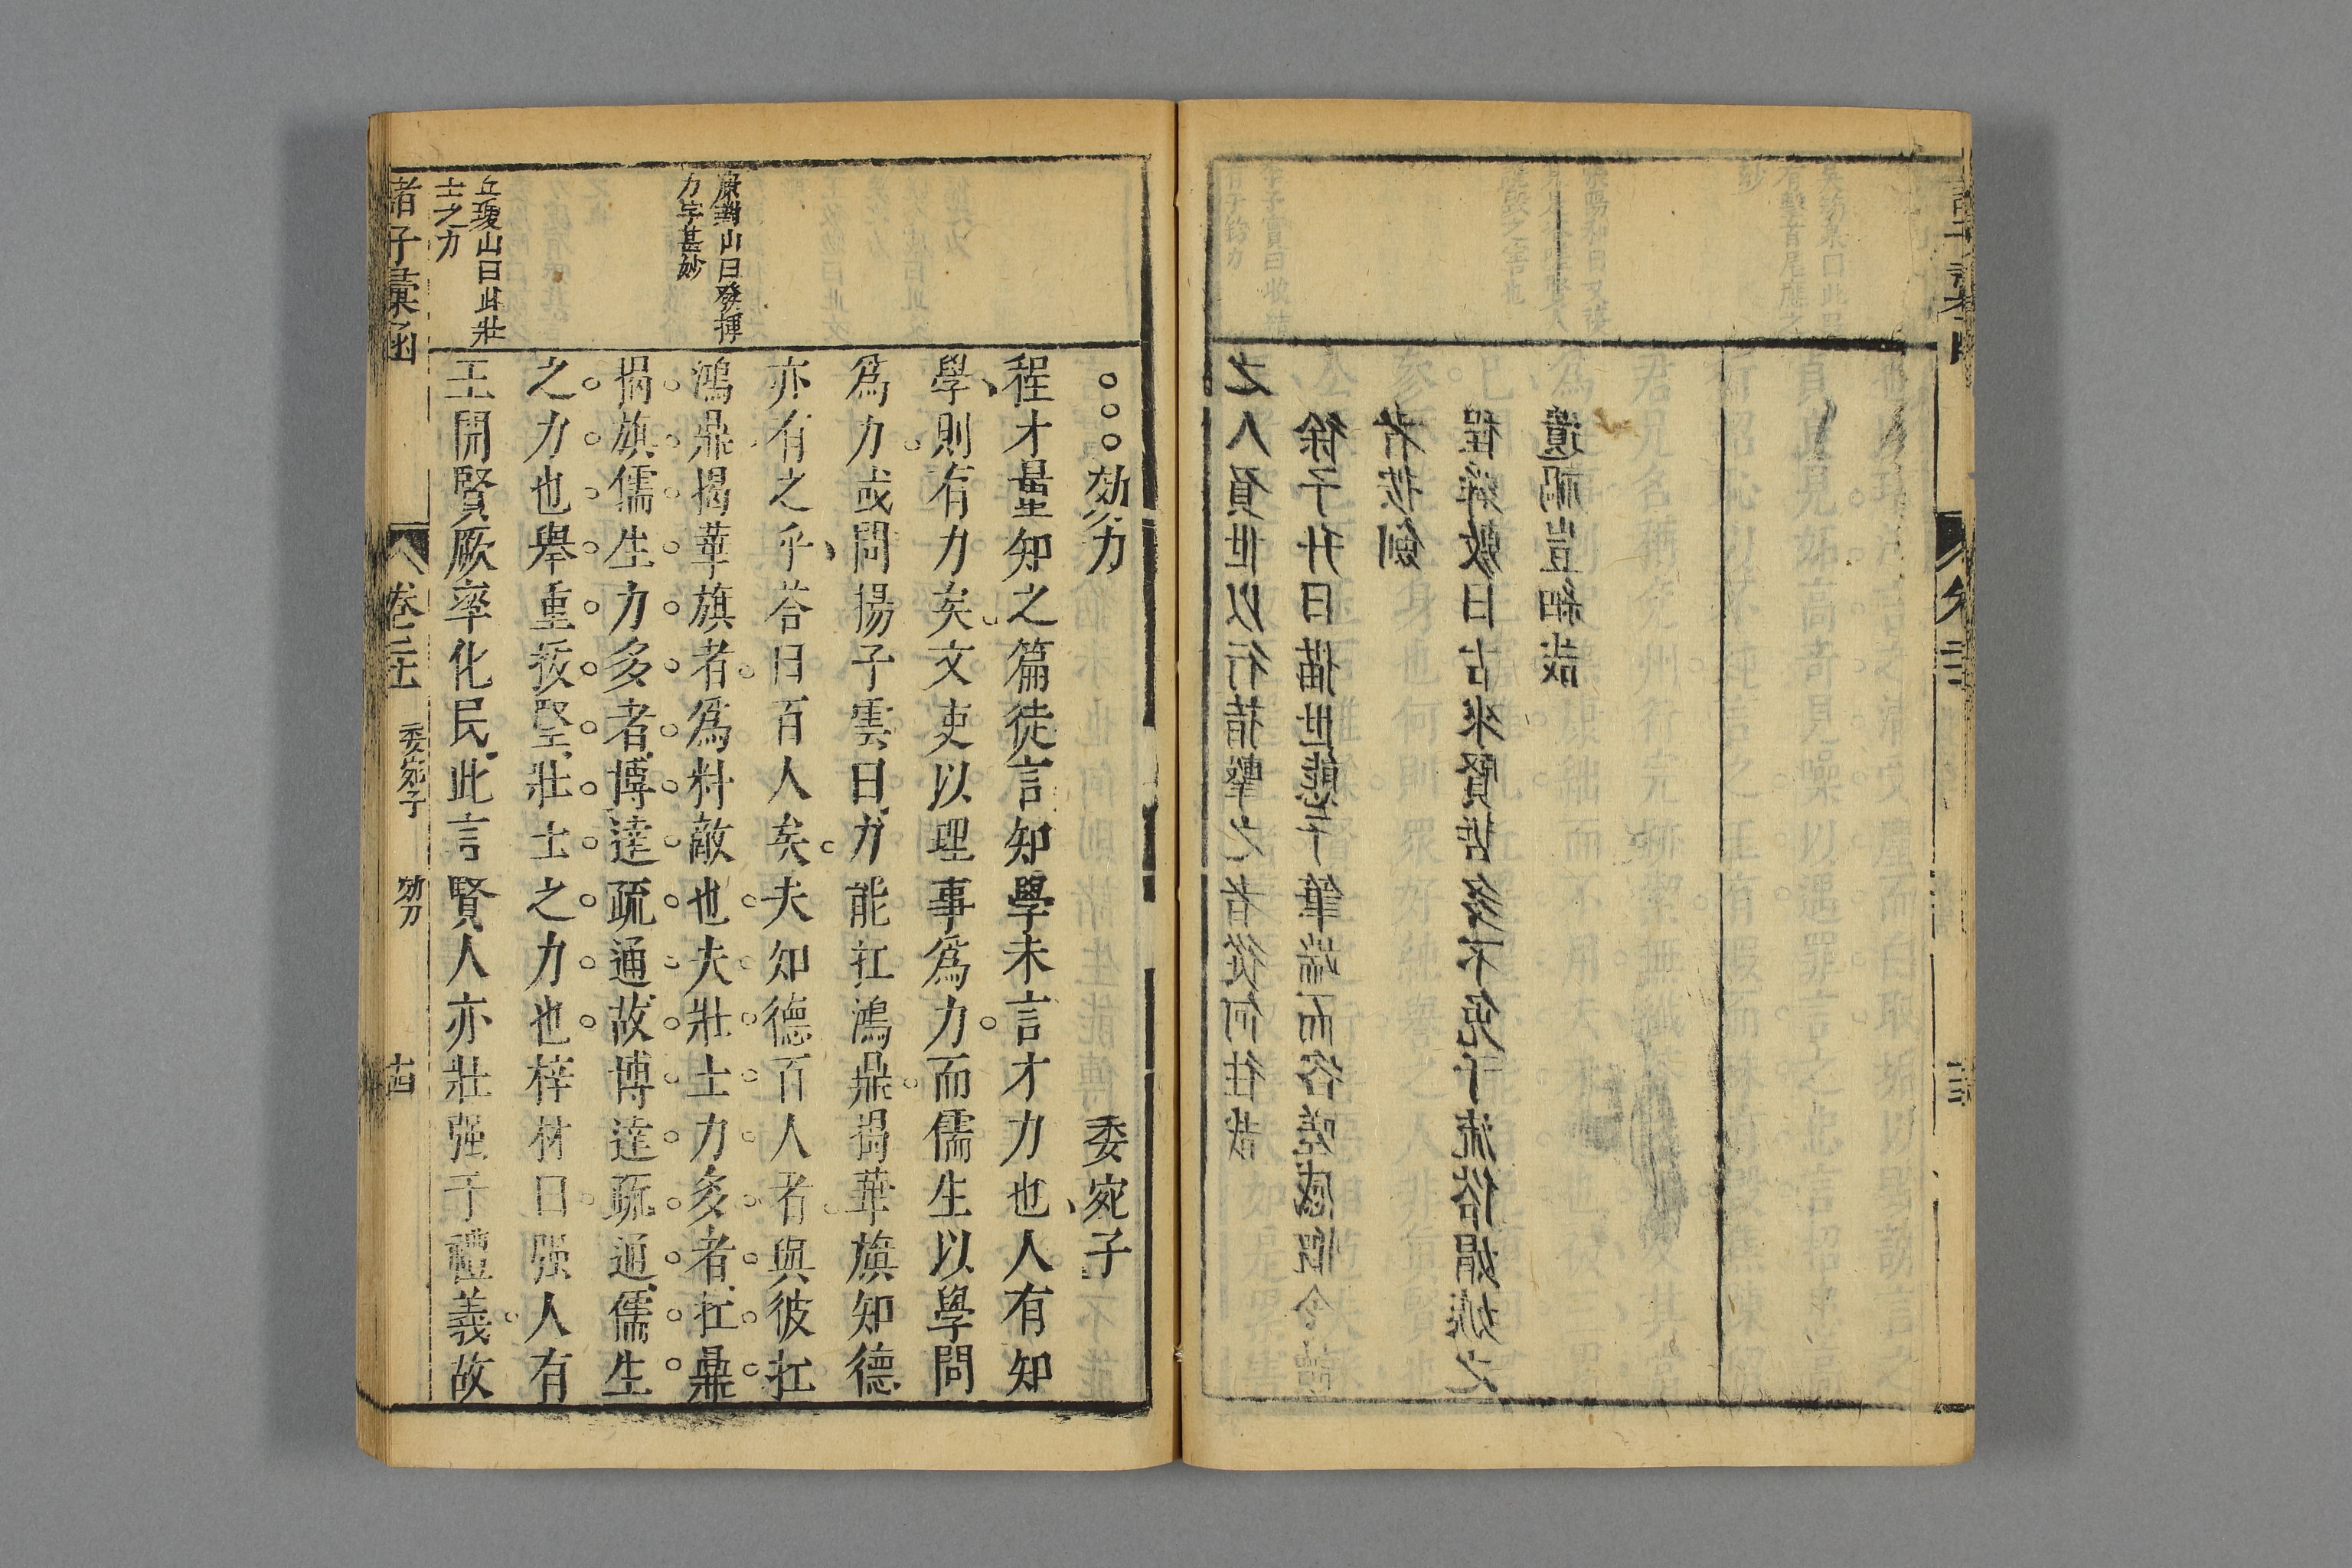 之人負世以行指擊之者從何往哉
徐子升曰描世態于筆端而咨嗟感慨令讀
者按劍
程篁墩曰古來賢喆終不免于流俗娼嫉之
遺禍豈細哉
効力 委宛子
程才量知之篇徒言知學未言才力也人有知
學則有力矣文吏以理事爲力而儒生以學問
爲力或問揚子雲曰力能扛鴻鼎揭華旗知德
亦有之乎荅曰百人矣夫知德百人者與彼扛
鴻鼎揭華旗者爲料敵也夫壯士力多者扛鼎
揭旗儒生力多者博達疏通故博達疏通儒生
之力也舉重拔堅壯士之力也梓材曰强人有
王開賢厥率化民此言賢人亦壯强于禮義故
康對山曰發揮
力字甚妙
丘瓊山曰此壯
士之力
諸子彙函 卷二十 委宛子 効力 十四